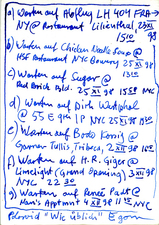 a) Warten auf Abflug LH 404 FRA→
NY @ Restaurant Lilienthal, 23 XI
15 10 98
b) Warten auf Chicken Noodle Soup @
HSF Restaurant NYC Bowery 25 XII 98
c) Warten auf Sugar @ 13 05
Red Brick Bld. 25 XII 98 15 00 NYC
d) Warten auf Dirk Westphal
@ 55 E 9th 1P NYC 25 XII 98
e) Warten auf Bodo Korsig @
Garner Tullis, Tribeca, 2 XII 98
f) Warten auf H.R. Giger @
Limelight (Grand Opening) 3 XII 98
NYC 22 30
g) Warten auf Renée Pabst @
Hans's Appmnt 4 XII 98 NYC
Polaroid "Wie üblich" Egon